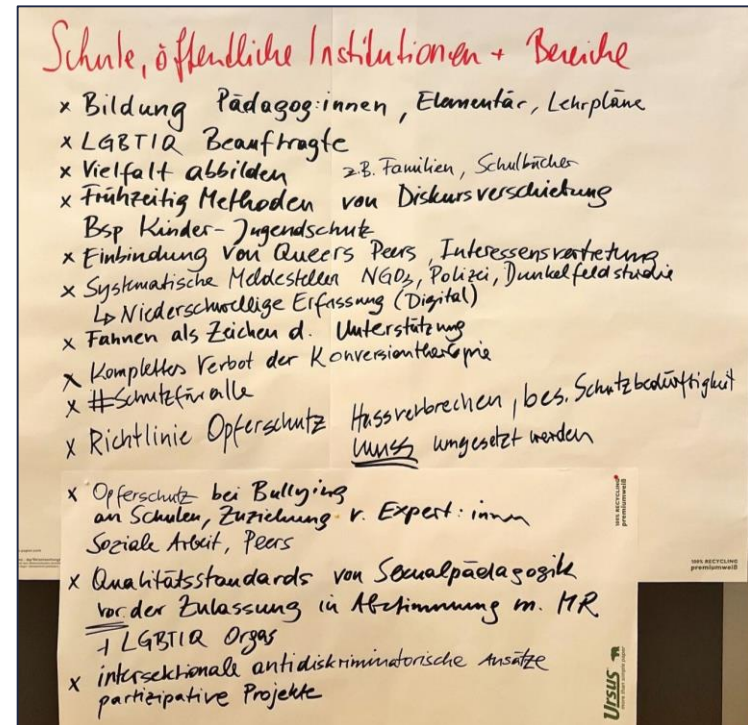 Schule, öffentliche Institutionen + Bereiche
x Bildung Pädagog:innen, Elementar, Lehrpläne
x LGBTIQ Beauftragte
x Vielfalt abbilden z.B. Familien, Schulbücher
x Frühzeitig Methoden von Diskursverschiebung
Bsp Kinder-Jugendschutz
x Einbindung von Queers Peers, Interessensvertretung
x Systematische Meldestellen NGOs, Polizei, Dunkelfeldstudie
↳ Niederschwellige Erfassung (Digital)
x Fahnen als Zeichen d. Unterstützung
x Komplettes Verbot der Konversiontherapie
x #Schutzfüralle
x Richtlinie Opferschutz Hassverbrechen, bes. Schutzbedürftigkeit
muss umgesetzt werden
x Opferschutz bei Bullying
an Schulen, Zuziehung v. Expert:innen
Soziale Arbeit, Peers
x Qualitätsstandards von Sexualpädagogik
vor der Zulassung in Abstimmung m. MR
+ LGBTIQ Orgas
x intersektionale antidiskriminatorische Ansätze
partizipative Projekte
100% RECYCLING
premiumweiß
100% RECYCLING
premiumweiß
Ursus
more than simple paper